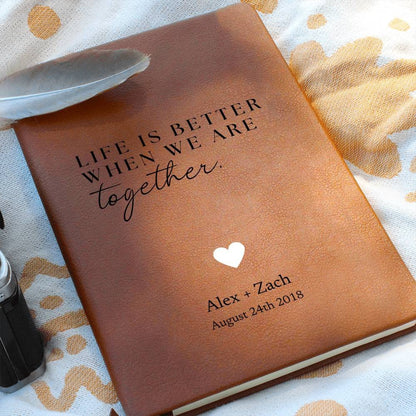 LIFE IS BETTER
WHEN WE ARE
together.
Alex + Zach
August 24th 2018